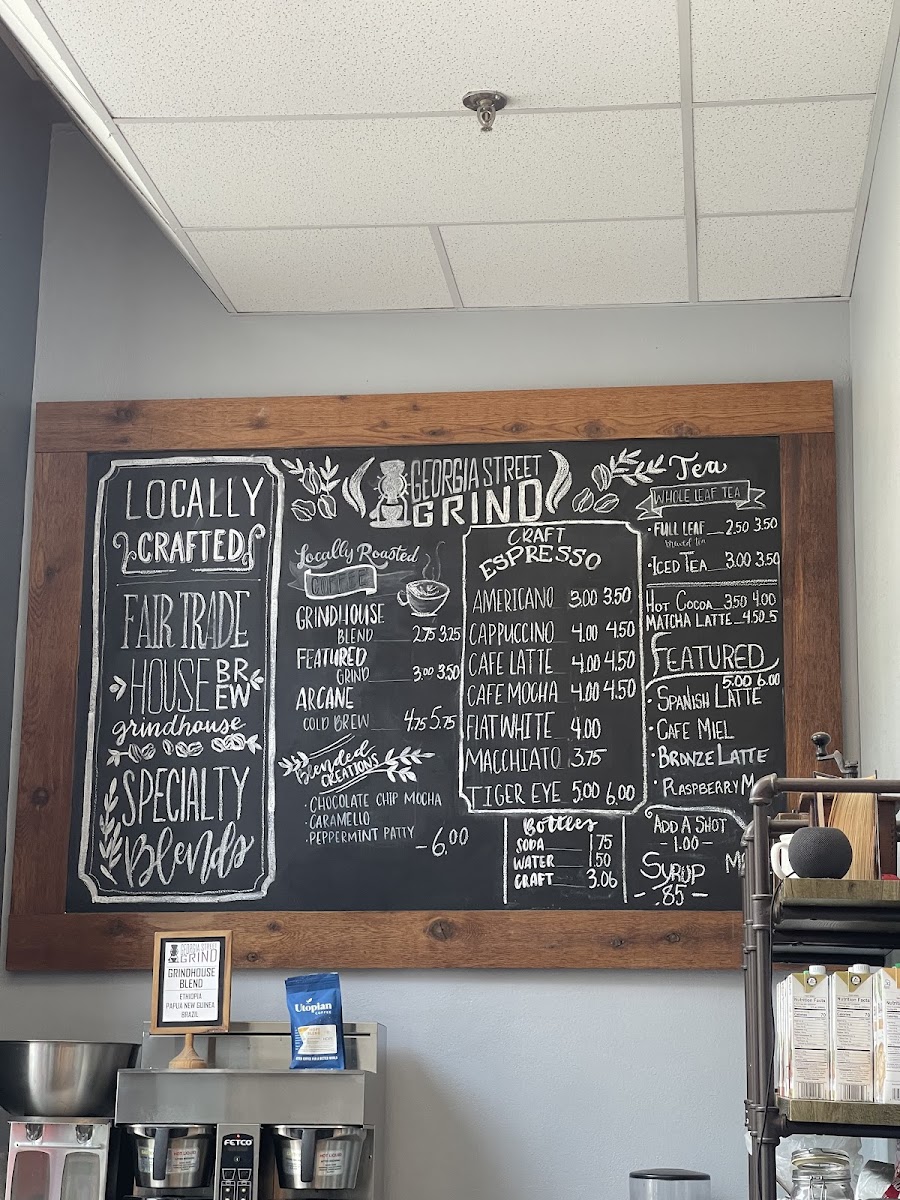 LOCALLY
CRAFTED
FAIR TRADE
HOUSE BREW
grindhouse
SPECIALTY
Blends
GEORGIA STREET
GRIND
Locally Roasted
COFFEE
GRINDHOUSE
BLEND 2.75 3.25
FEATURED
GRIND 3.00 3.50
ARCANE
COLD BREW 4.75 5.75
blended
CREATIONS
· CHOCOLATE CHIP MOCHA
· CARAMELLO
· PEPPERMINT PATTY
- 6.00
CRAFT
ESPRESSO
AMERICANO 3.00 3.50
CAPPUCCINO 4.00 4.50
CAFE LATTE 4.00 4.50
CAFE MOCHA 4.00 4.50
FLAT WHITE 4.00
MACCHIATO 3.75
TIGER EYE 5.00 6.00
Bottles
SODA 1.75
WATER 1.50
CRAFT 3.06
Tea
WHOLE LEAF TEA
· FULL LEAF 2.50 3.50
brewed tea
· ICED TEA 3.00 3.50
HOT COCOA 3.50 4.00
MATCHA LATTE 4.50 5
FEATURED
5.00 6.00
· SPANISH LATTE
· CAFE MIEL
· BRONZE LATTE
· RASPBERRY M
ADD A SHOT
- 1.00 -
SYRUP
- .85 -
GEORGIA STREET
GRIND
GRINDHOUSE
BLEND
ETHIOPIA
PAPUA NEW GUINEA
BRAZIL
Utopian
COFFEE
FETCO
HOT LIQUID
HOT LIQUID
Nutrition Facts
Nutrition Facts